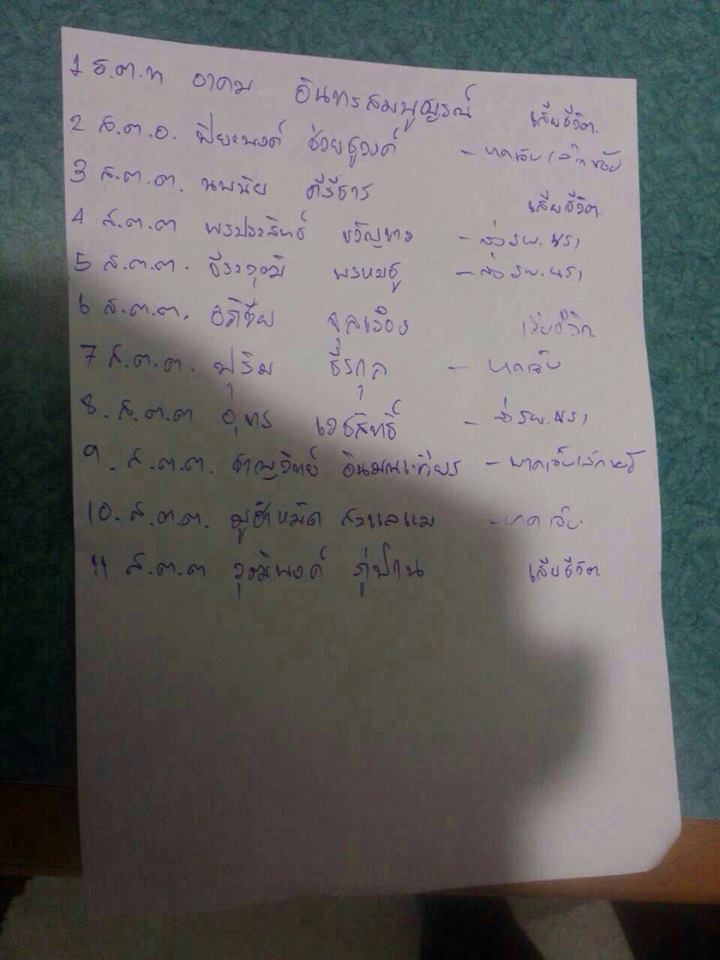 1 ร.ต.ท อาคม อินทรสมบูญรณ์ เสียชีวิต
2 ส.ต.อ. ปิยะพงค์ ช่วยชูวงค์ - บาดเจ็บเล็กน้อย
3 ส.ต.ต. นพนัย คีรีธาร เสียชีวิต
4 ส.ต.ต พรประสิทธ์ ขวัญขาว - ส่งรพ.นรา
5 ส.ต.ต. ธีระวุฒิ พรหมชู - ส่งรพ.นรา
6 ส.ต.ต. อภิชัย จุลเรือง เสียชีวิต
7 ส.ต.ต. ปุริม ธีรกุล - บาดเจ็บ
8. ส.ต.ต อุทร เดชสิทธิ์ - ส่งรพ.นรา
9. ส.ต.ต. ชาญวิทย์ อินมณเฑียร - บาดเจ็บเล็กน้อย
10. ส.ต.ต. มูฮำหมัด สาแลแม - บาดเจ็บ
11 ส.ต.ต วุฒิพงค์ ภู่ปาน เสียชีวิต